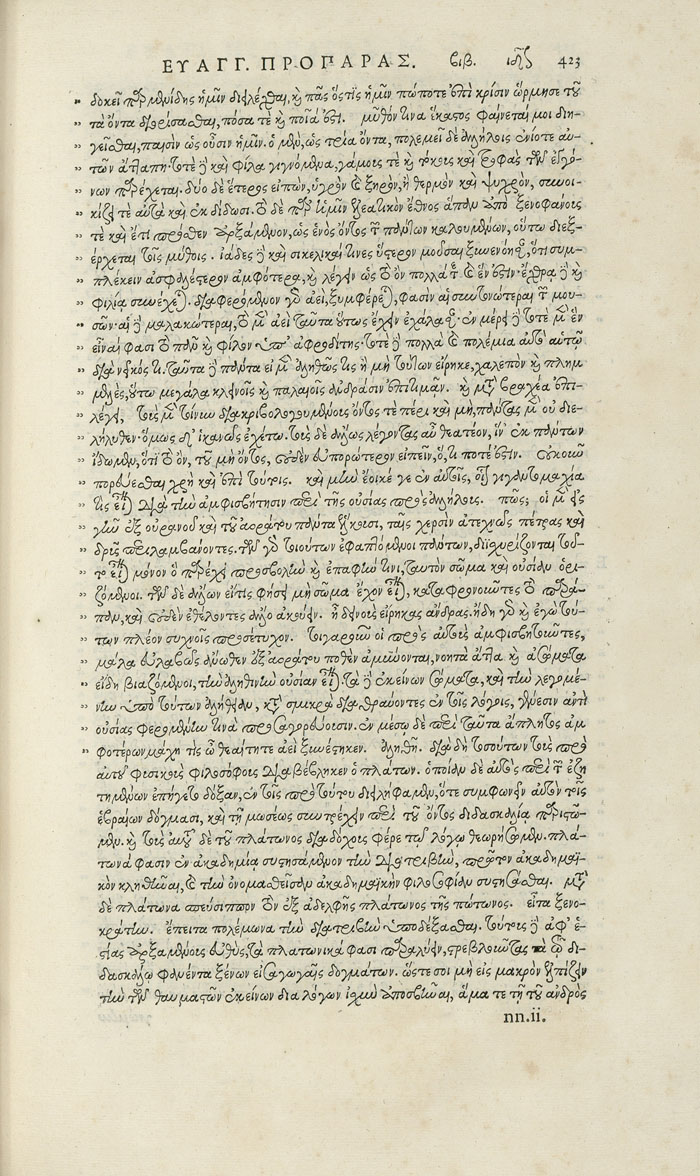 ΕΥΑΓΓ. ΠΡΟΠΑΡΑΣ. βιβ. ιδʹ 423
δοκεῖ παρμενίδης ἡμῖν διειλέχθαι, καὶ πᾶς ὅστις ἡμῖν πώποτε ἐπὶ κρίσιν ὥρμησε τοῦ
τὰ ὄντα διορίσασθαι, πόσα τὲ καὶ ποῖά ἐστι. μῦθόν τινα ἕκαστος φαίνεταί μοι διη-
γεῖσθαι, παισὶν ὡς οὖσιν ἡμῖν. ὁ μὲν, ὡς τρία ὄντα, πολεμεῖ δὲ ἀλλήλοις ἐνίοτε αυ-
τῶν ἄττα πη· τοτὲ δὲ καὶ φίλα γιγνόμενα, γάμοις τὲ καὶ τόκοις καὶ τροφὰς τῶν ἐκγό-
νων παρέχεται. δύο δὲ ἕτερος εἰπὼν, ὑγρὸν καὶ ξηρὸν, ἢ θερμὸν καὶ ψυχρὸν, συνοι-
κίζει τὲ αὐτὰ καὶ ἐκδίδωσι. τὸ δὲ παρ' ἡμῖν ἐλεατικὸν ἔθνος ἅπαν ἀπὸ ξενοφάνοις
τὲ καὶ ἔτι πρόσθεν ἀρξάμενον, ὡς ἑνὸς ὄντος τῶν πάντων καλουμένων, οὕτω διεξ-
έρχεται τοῖς μύθοις. ἰάδες δὲ καὶ σικελικαί τινες ὕστερον μοῦσαι ξυνενόησαν, ὅτι συμ-
πλέκειν ἀσφαλέστερον ἀμφότερα, καὶ λέγειν ὡς τὸ ὂν πολλά τε καὶ ἕν ἐστιν· ἔχθρᾳ δὲ καὶ
φιλίᾳ συνέχεται. διαφερόμενον γὰρ ἀεὶ, ξυμφέρεται, φασὶν αἱ συντονώτεραι τῶν μου-
σῶν· αἱ δὲ μαλακώτεραι, τὸ μὲν ἀεὶ ταῦτα οὕτως ἔχειν ἐχάλασαν· ἐν μέρει δὲ τοτὲ μὲν ἓν
εἶναί φασι τὸ πᾶν καὶ φίλον ὑπ' ἀφροδίτης· τοτὲ δὲ πολλὰ καὶ πολέμια αὐτὸ αὑτῷ
διὰ νεῖκός τι. ταῦτα δὲ πάντα εἰ μὲν ἀληθῶς τὶς ἢ μὴ τούτων εἴρηκε, χαλεπὸν καὶ πλημ
μελὲς, οὕτω μεγάλα κλεινοῖς καὶ παλαιοῖς ἀνδράσιν ἐπιτιμᾶν. καὶ μετὰ βραχέα ἐπι-
λέγει, τοὺς μὲν τοίνυν διακριβολογουμένους ὄντος τὲ πέρι καὶ μὴ, πάντας μὲν οὐ διε-
λήλυθεν· ὅμως δ' ἱκανῶς ἐχέτω. τοὺς δὲ ἄλλως λέγοντας αὖ θεατέον, ἵν' ἐκ πάντων
ἴδωμεν, ὅτι τὸ ὂν, τοῦ μὴ ὄντος, οὐδὲν εὐπορώτερον εἰπεῖν, ὅ,τι ποτέ ἐστιν. οὐκοῦν
πορεύεσθαι χρὴ καὶ ἐπὶ τούτοις. καὶ μὴν ἔοικέ γε ἐν αὐτοῖς, οἷον γιγαντομαχία
τὶς εἶναι διὰ τὴν ἀμφισβήτησιν περὶ τῆς οὐσίας πρὸς ἀλλήλους. πῶς; οἱ μὲν εἰς
γῆν ἐξ οὐρανοῦ καὶ τοῦ ἀοράτου πάντα ἕλκουσι, ταῖς χερσὶν ἀτεχνῶς πέτρας καὶ
δρῦς περιλαμβάνοντες. τῶν γὰρ τοιούτων ἐφαπτόμενοι πάντων, διϊσχυρίζονται τοῦ-
το εἶναι μόνον ὃ παρέχει προσβολὴν καὶ ἐπαφήν τινι, ταυτὸν σῶμα καὶ οὐσίαν ὁρι-
ζόμενοι. τῶν δὲ ἄλλων εἴ τις φήσει μὴ σῶμα ἔχον εἶναι, καταφρονοῦντες τὸ παρά-
παν, καὶ οὐδὲν ἐθέλοντες ἄλλο ἀκούειν. ἦ δεινοὺς εἴρηκας ἄνδρας. ἤδη γὰρ καὶ ἐγὼ τού-
των πλέον συχνοῖς προσέτυχον. τοιγαροῦν οἱ πρὸς αὐτοὺς ἀμφισβητοῦντες,
μάλα εὐλαβῶς ἄνωθεν ἐξ ἀοράτου ποθὲν ἀμύνονται, νοητὰ ἄττα καὶ ἀσώματα
εἴδη βιαζόμενοι, τὴν ἀληθινὴν οὐσίαν εἶναι· τὰ δὲ ἐκείνων σώματα, καὶ τὴν λεγομέ-
νην ὑπὸ τούτων ἀλήθειαν, κατὰ σμικρὰ διαθραύοντες ἐν τοῖς λόγοις, γένεσιν ἀντὶ
οὐσίας φερομένην τινὰ προσαγορεύουσιν. ἐν μέσῳ δὲ περὶ ταῦτα ἄπλητος ἀμ
φοτέρων μάχη τὶς ὦ θεαίτητε ἀεὶ ξυνέστηκεν. ἀληθῆ. διὰ δὴ τοσούτων τοὺς πρὸ
αυτοῦ φυσικοὺς φιλοσόφους διαβέβληκεν ὁ πλάτων. ὁποίαν δὲ αὐτὸς περὶ τῶν ἐζη
τημένων ἐπήγετο δόξαν, ἐν τοῖς πρὸ τούτου διειλήφαμεν, ὅτε συμφωνεῖν αὐτὸν τοῖς
ἑβραίων δόγμασι, καὶ τῇ μωσέως συντρέχειν περὶ τοῦ ὄντος διδασκαλίᾳ παριστῶ-
μεν. καὶ τοὺς αὐτοῦ δὲ τοῦ πλάτωνος διαδόχους φέρε τῷ λόγῳ θεωρήσωμεν. πλά-
τωνά φασιν ἐν ἀκαδημίᾳ συστησάμενον τὴν διατριβὴν, πρῶτον ἀκαδημαϊ-
κὸν κληθῆναι, καὶ τὴν ὀνομασθεῖσαν ἀκαδημαϊκὴν φιλοσοφίαν συστήσασθαι. μετὰ
δὲ πλάτωνα σπεύσιππον τὸν ἐξ ἀδελφῆς πλάτωνος τῆς πώτωνος. εἶτα ξενο-
κράτην. ἔπειτα πολέμωνα τὴν διατριβὴν ὑποδέξασθαι. τούτους δὲ ἀφ' ἑ-
στίας ἀρξαμένους εὐθὺς, τὰ πλατωνικά φασι παραλύειν, στρεβλοῦντας τὰ τῷ δι-
δασκάλῳ φανέντα ξένων εἰσαγωγαῖς δογμάτων. ὥστε σοι μὴ εἰς μακρὸν ἐλπίζειν
τὴν τῶν θαυμαστῶν ἐκείνων διαλόγων ἰσχὺν ἀποσβῆναι, ἅμα τε τῇ τοῦ ἀνδρὸς
nn.ii.